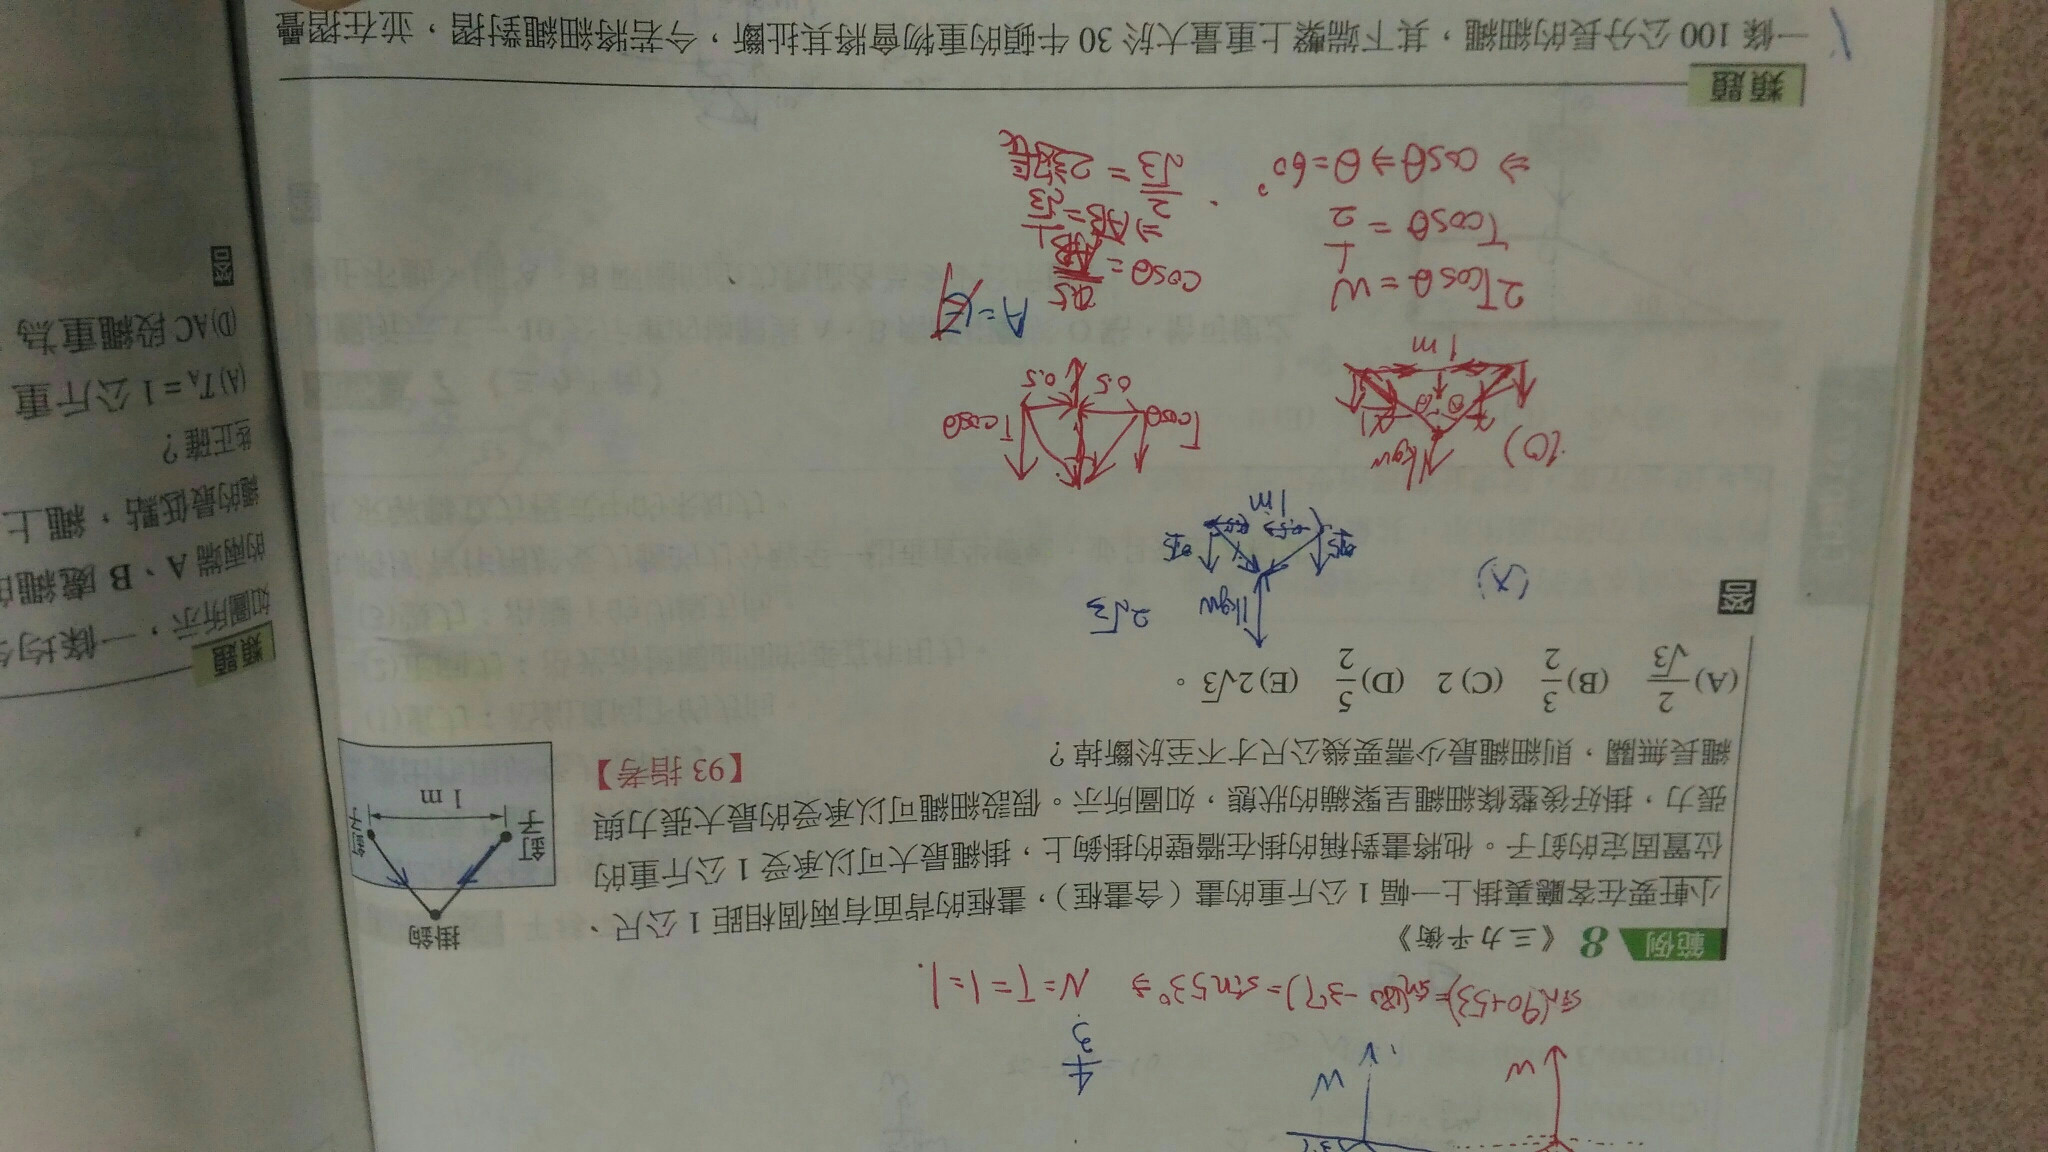 sin(90+53)=sin(180-37)=sin53° ⇒ N=T=1=1.
W
W
4/3
範例 8 《三力平衡》
小軒要在客廳裏掛上一幅 1 公斤重的畫（含畫框），畫框的背面有兩個相距 1 公尺、
位置固定的釘子。他將畫對稱的掛在牆壁的掛鉤上，掛繩最大可以承受 1 公斤重的
張力，掛好後整條細繩呈緊繃的狀態，如圖所示。假設細繩可以承受的最大張力與
繩長無關，則細繩最少需要幾公尺才不至於斷掉？ 【93 指考】
掛鉤
釘子
釘子
1 m
(A) 2/√3 (B) 3/2 (C) 2 (D) 5/2 (E) 2√3 。
答
(X)
1kgw
2√3
0.5
0.5
1m
(O)
1kgw
θ θ
1m
Tcosθ
Tcosθ
0.5 0.5
2Tcosθ=W
Tcosθ = 1/2
⇒ cosθ ⇒ θ=60°
cosθ =
A=
類題
一條 100 公分長的細繩，其下端繫上重量大於 30 牛頓的重物會將其扯斷，今若將細繩對摺，並在摺疊
類題
如圖所示，一條均勻
的兩端 A、B 處繩的
繩的最低點，繩上
些正確？
(A) T_A = 1 公斤重
(D) AC 段繩重為
答